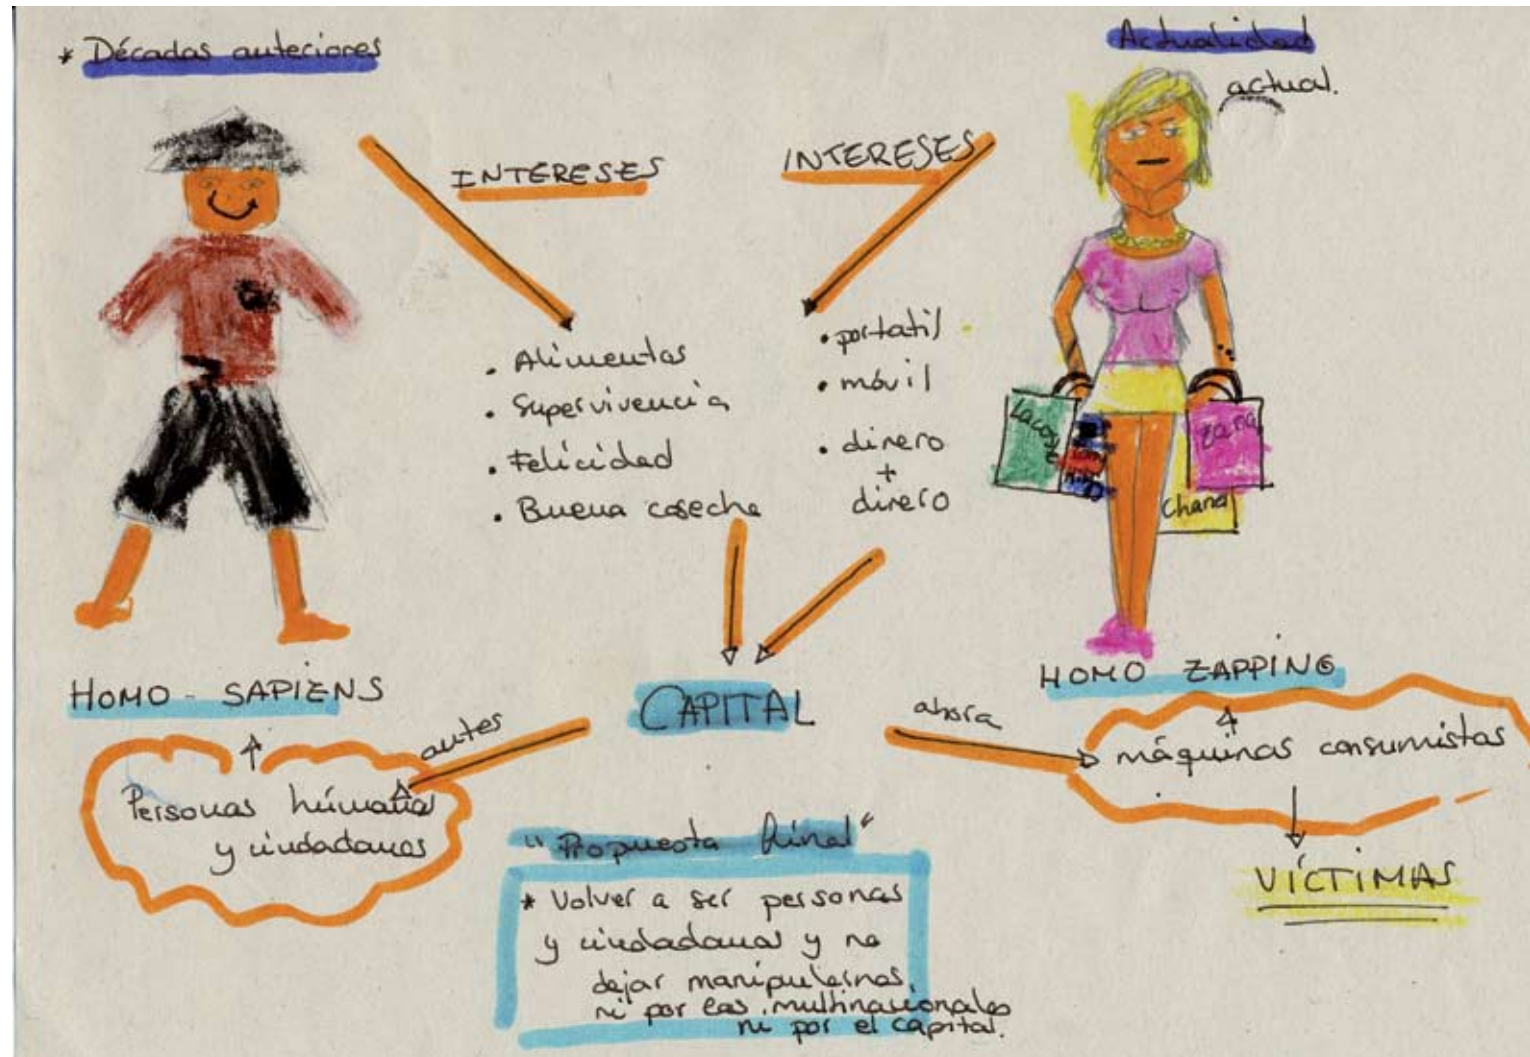 * Décadas anteriores
Actualidad
actual.
INTERESES
INTERESES
• Alimentos
• Supervivencia
• Felicidad
• Buena cosecha
• portatil
• móvil
• dinero
+
dinero
Lacoste
zara
Chanel
HOMO - SAPIENS
CAPITAL
HOMO ZAPPING
antes
ahora
Personas húmanas
y ciudadanas
máquinas consumistas
VÍCTIMAS
"Propuesta final"
* Volver a ser personas
y ciudadanas y no
dejar manipularnos,
ni por las multinacionales
ni por el capital.